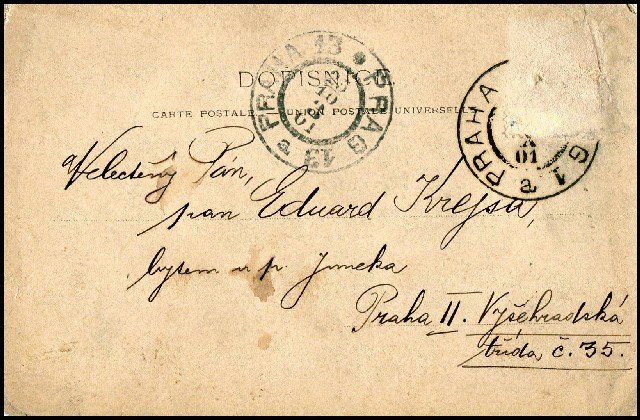 DOPISNICE.
CARTE POSTALE UNION POSTALE UNIVERSELLE
PRAHA 13 PRAG 13 a
01
PRAHA G 1 a
01
Velectěný Pán,
pan Eduard Krejsa,
bytem u p.
Praha II. Vyšehradská
třída č. 35.